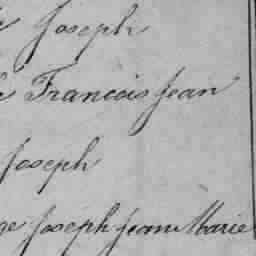 Joseph
Francois Jean
Joseph
ge Joseph Jean Marie